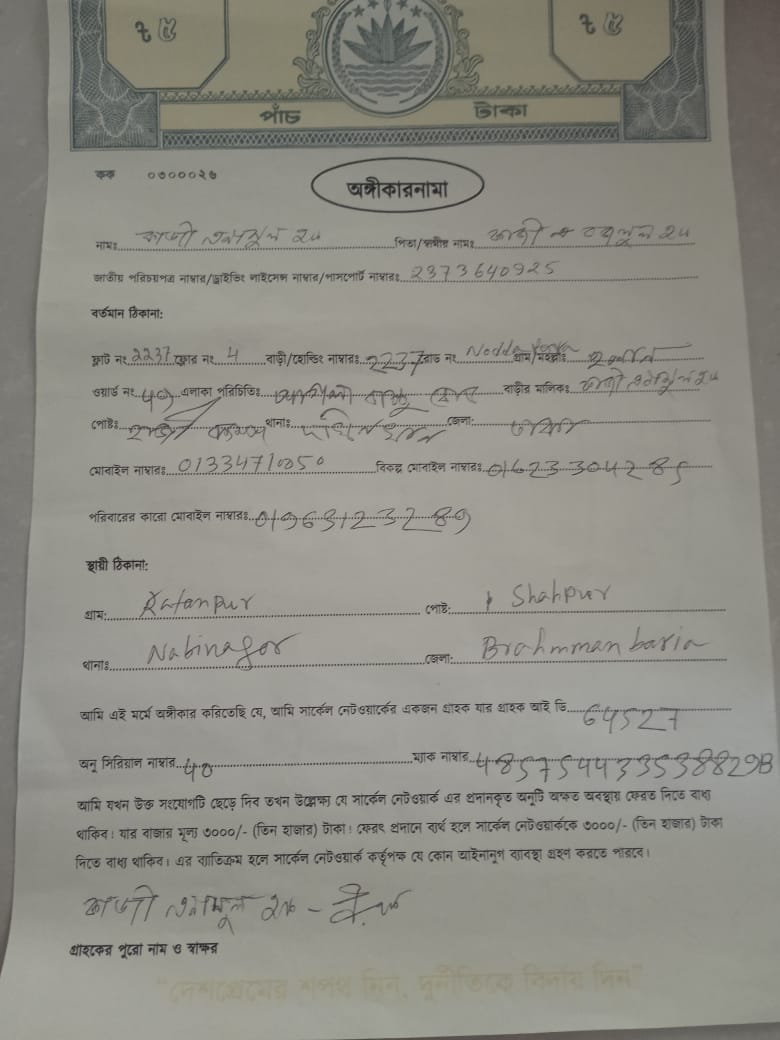 ৳ ৫ ৳ ৫
পাঁচ টাকা
কক ০৩০০০২৬
অঙ্গীকারনামা
নামঃ কাজী এনামুল হক পিতা/স্বামীর নামঃ কাজী হক
জাতীয় পরিচয়পত্র নাম্বার/ড্রাইভিং লাইসেন্স নাম্বার/পাসপোর্ট নাম্বারঃ 2373640925
বর্তমান ঠিকানা:
ফ্লাট নং 2237 ফ্লোর নং 4 বাড়ী/হোল্ডিং নাম্বারঃ 2237 রোড নং Nodda গ্রাম/মহল্লাঃ
ওয়ার্ড নং 40 এলাকা পরিচিতিঃ বাড়ীর মালিকঃ কাজী এনামুল হক
পোষ্টঃ থানাঃ জেলা:
মোবাইল নাম্বারঃ 01334710050 বিকল্প মোবাইল নাম্বারঃ 01623304285
পরিবারের কারো মোবাইল নাম্বারঃ 01963123289
স্থায়ী ঠিকানা:
গ্রাম: Ratanpur পোষ্ট: Shahpur
থানাঃ Nabinagor জেলা: Brahmmanbaria
আমি এই মর্মে অঙ্গীকার করিতেছি যে, আমি সার্কেল নেটওয়ার্কের একজন গ্রাহক যার গ্রাহক আই ডি 64527
অনু সিরিয়াল নাম্বার 40 ম্যাক নাম্বার 485754433538829B
আমি যখন উক্ত সংযোগটি ছেড়ে দিব তখন উল্লেক্ষ্য যে সার্কেল নেটওয়ার্ক এর প্রদানকৃত অনুটি অক্ষত অবস্থায় ফেরত দিতে বাধ্য
থাকিব। যার বাজার মূল্য ৩০০০/- (তিন হাজার) টাকা। ফেরৎ প্রদানে ব্যর্থ হলে সার্কেল নেটওয়ার্ককে ৩০০০/- (তিন হাজার) টাকা
দিতে বাধ্য থাকিব। এর ব্যতিক্রম হলে সার্কেল নেটওয়ার্ক কর্তৃপক্ষ যে কোন আইনানুগ ব্যবস্থা গ্রহণ করতে পারবে।
কাজী এনামুল হক
গ্রাহকের পুরো নাম ও স্বাক্ষর
"দেশপ্রেমের শপথ নিন, দুর্নীতিকে বিদায় দিন"